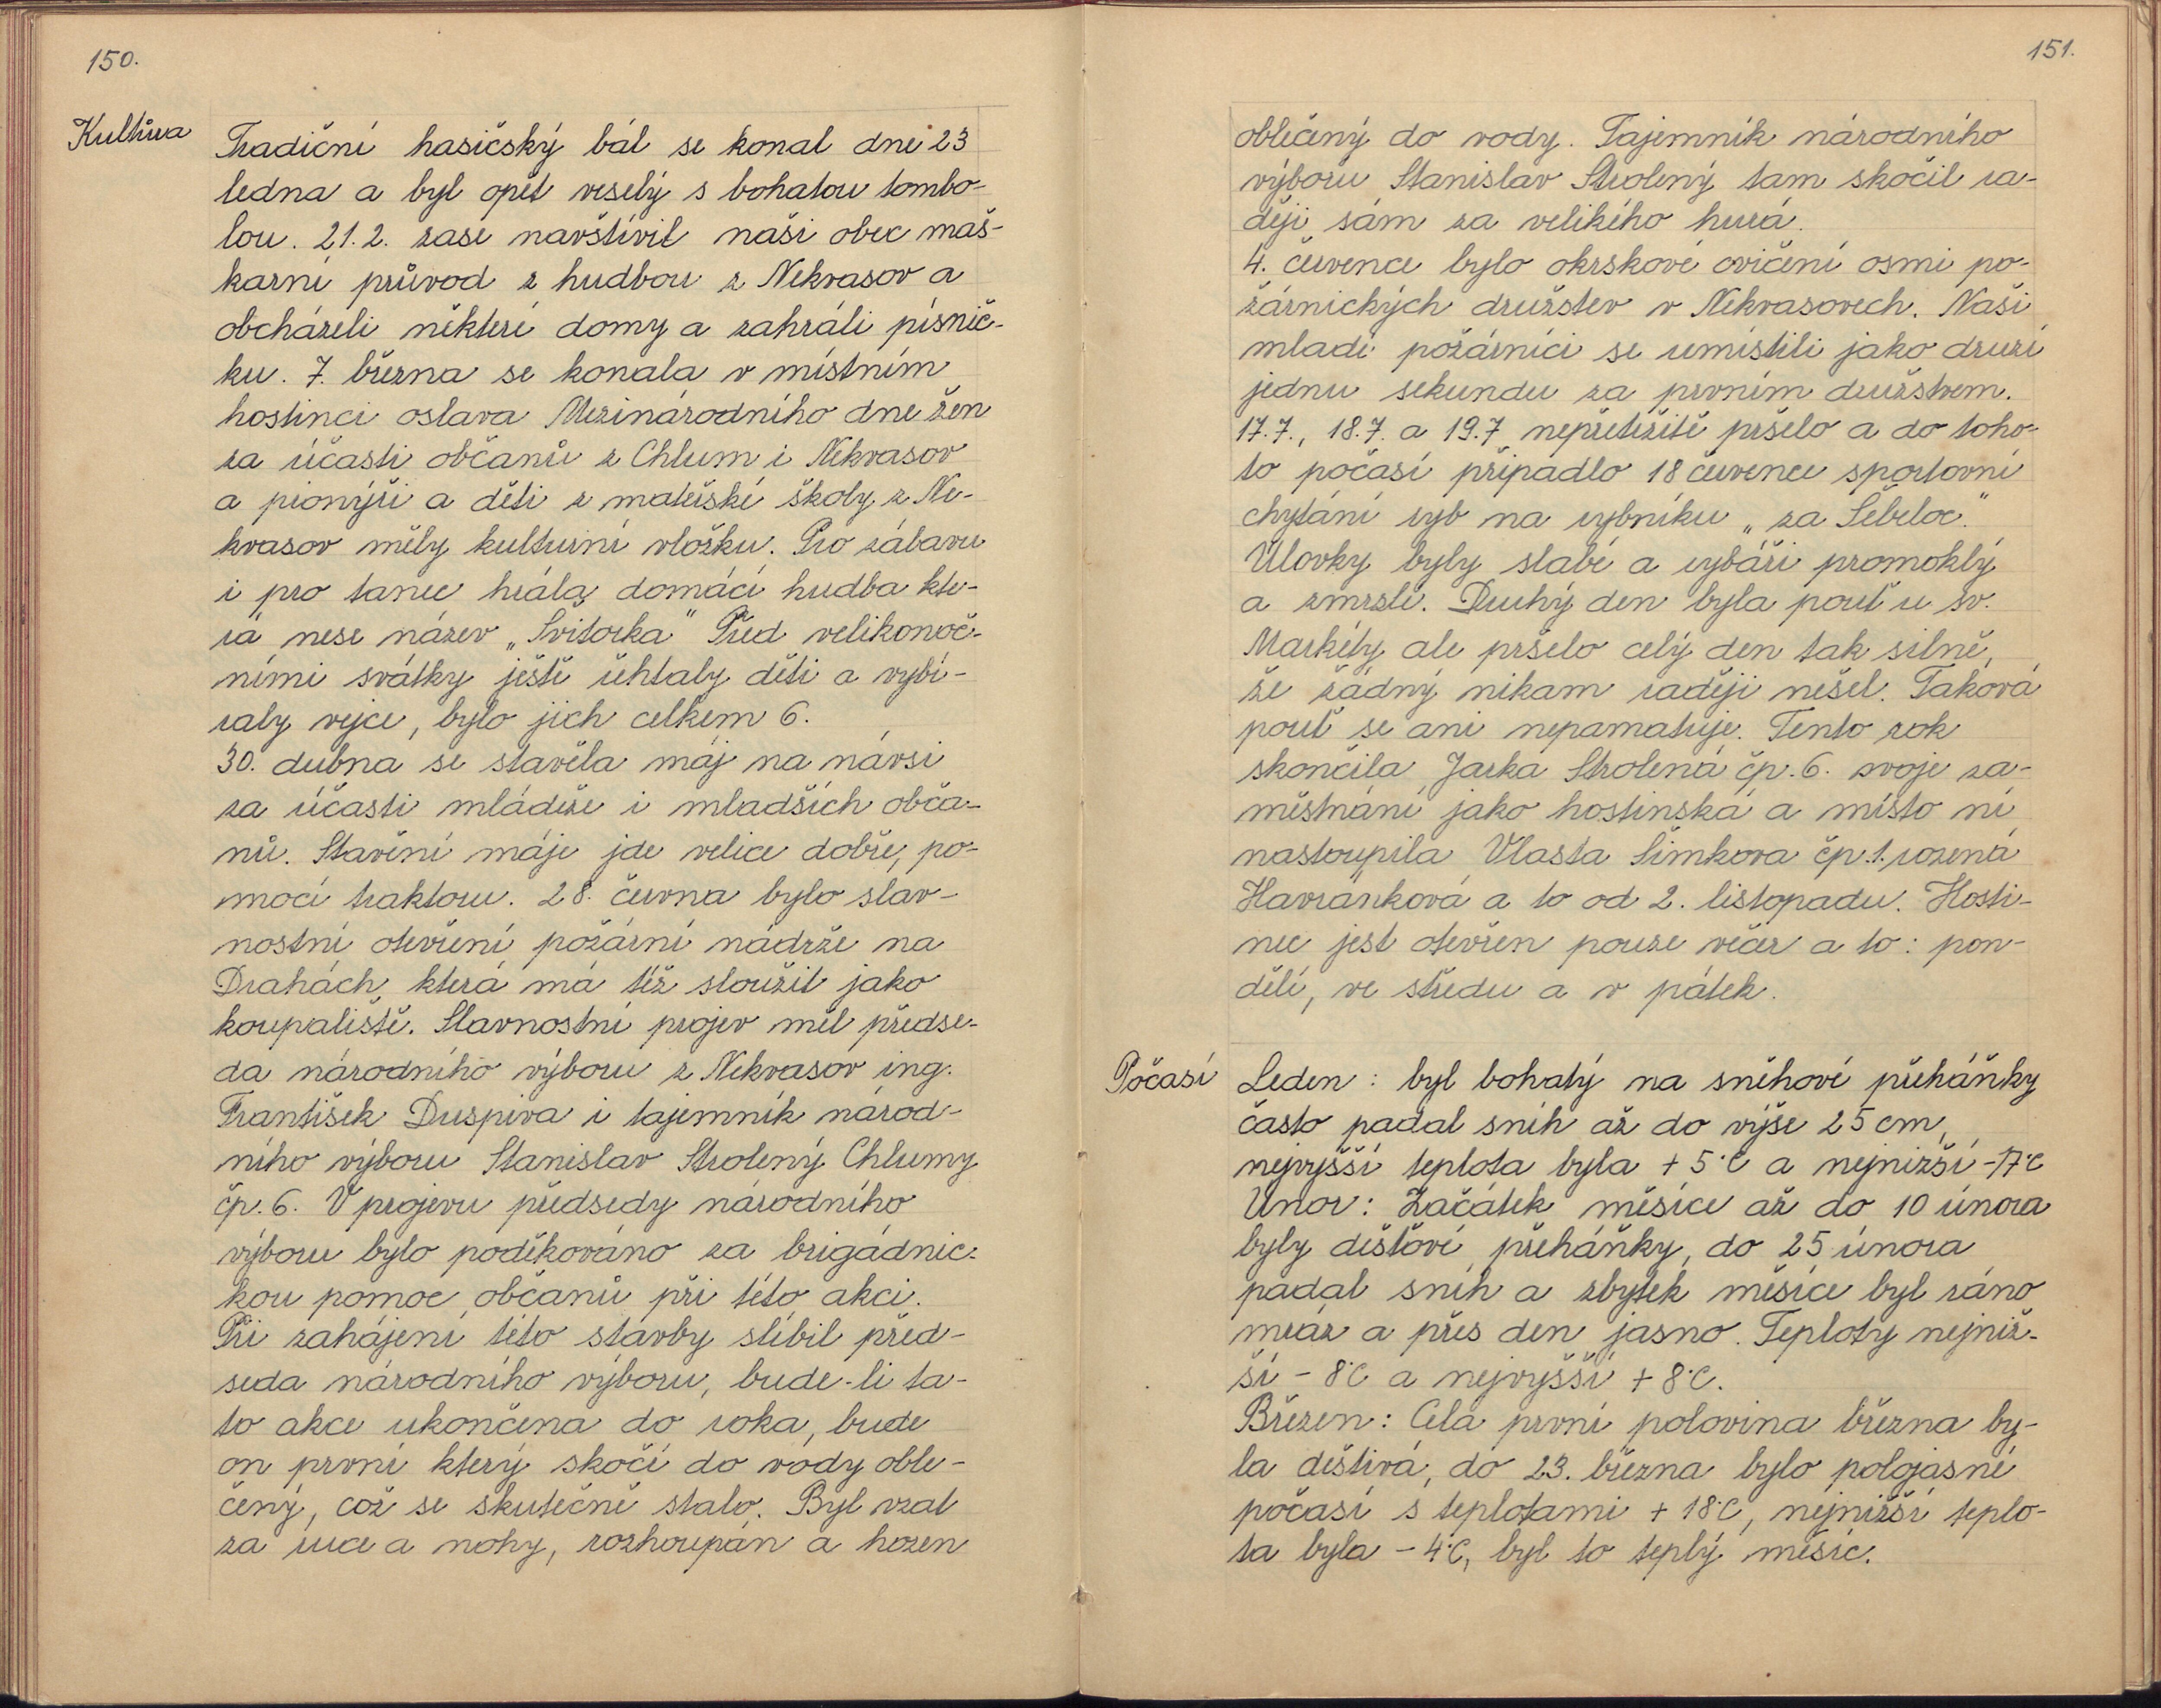 150.
Kultura
Tradiční hasičský bál se konal dne 23
ledna a byl opět veselý s bohatou tombo-
lou. 21. 2. zase navštívil naši obec maš-
karní průvod z hudbou z Nekvasov a
obcházeli některé domy a zahráli písnič-
ku. 7. března se konala v místním
hostinci oslava Mezinárodního dne žen
za účasti občanů z Chlum i Nekvasov
a pionýři a děti z mateřské školy z Ne-
kvasov měly kulturní vložku. Pro zábavu
i pro tanec hrála domácí hudba kte-
rá nese název „Svitorka" Před velikonoč-
ními svátky ještě řehtaly děti a vybí-
raly vejce, bylo jich celkem 6.
30. dubna se stavěla máj na návsi
za účasti mládeže i mladších obča-
nů. Stavění máje jde velice dobře, po-
mocí traktoru. 28. června bylo slav-
nostní otevření požární nádrže na
Drahách, která má též sloužit jako
koupaliště. Slavnostní projev měl předse-
da národního výboru z Nekvasov ing.
František Duspiva i tajemník národ-
ního výboru Stanislav Strolený Chlumy
čp. 6. V projevu předsedy národního
výboru bylo poděkováno za brigádnic-
kou pomoc občanů při této akci.
Při zahájení této stavby slíbil před-
seda národního výboru, bude-li ta-
to akce ukončena do roka, bude
on první který skočí do vody oble-
čený, což se skutečně stalo. Byl vzat
za ruce a nohy, rozhoupán a hozen
151.
oblečený do vody. Tajemník národního
výboru Stanislav Strolený tam skočil ra-
ději sám za velikého hurá.
4. července bylo okrskové cvičení osmi po-
žárnických družstev v Nekvasovech. Naši
mladí požárníci se umístili jako druzí
jednu sekundu za prvním družstvem.
17. 7., 18. 7. a 19. 7 nepřetržitě pršelo a do toho-
to počasí připadlo 18 červenec sportovní
chytání ryb na rybníku „za Šebeloc."
Úlovky byly slabé a rybáři promoklý
a zmrzlé. Druhý den byla pouť u sv.
Markéty ale pršelo celý den tak silně,
že žádný nikam raději nešel. Taková
pouť se ani nepamatuje. Tento rok
skončila Jarka Strolená čp. 6. svoje za-
městnání jako hostinská a místo ní
nastoupila Vlasta Šimkova čp. 1. rozená
Havránková a to od 2. listopadu. Hosti-
nec jest otevřen pouze večer a to: pon-
dělí, ve středu a v pátek.
Počasí
Leden: byl bohatý na sněhové přeháňky
často padal sníh až do výše 25 cm,
nejvyšší teplota byla + 5°C a nejnižší -17°C
Únor: Začátek měsíce až do 10 února
byly dešťové přeháňky, do 25 února
padal sníh a zbytek měsíce byl ráno
mráz a přes den jasno. Teploty nejniž-
ší - 8°C a nejvyšší + 8°C.
Březen: Celá první polovina března by-
la deštivá, do 23. března bylo polojasné
počasí s teplotami + 18°C, nejnižší teplo-
ta byla - 4°C, byl to teplý měsíc.